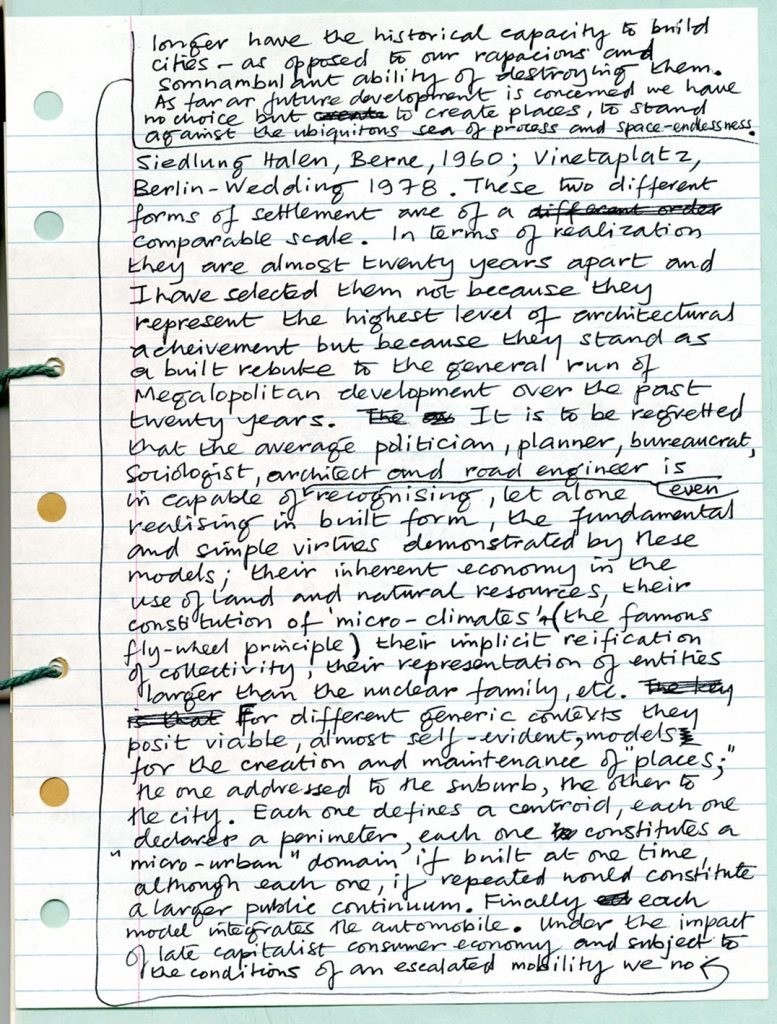 longer have the historical capacity to build
cities – as opposed to our rapacious and
somnambulant ability of destroying them.
As far as future development is concerned we have
no choice but create to create places, to stand
against the ubiquitous sea of process and space-endlessness.
Siedlung Halen, Berne, 1960; Vinetaplatz,
Berlin-Wedding 1978. These two different
forms of settlement are of a different order
comparable scale. In terms of realization
they are almost twenty years apart and
I have selected them not because they
represent the highest level of architectural
acheivement but because they stand as
a built rebuke to the general run of
Megalopolitan development over the past
twenty years. The It is to be regretted
that the average politician, planner, bureaucrat,
sociologist, architect and road engineer is
in capable of recognising, let alone even
realising in built form, the fundamental
and simple virtues demonstrated by these
models; their inherent economy in the
use of land and natural resources, their
constitution of 'micro-climates', (the famous
fly-wheel principle) their implicit reification
of collectivity, their representation of entities
larger than the nuclear family, etc. The key
is that For different generic contexts they
posit viable, almost self-evident, models
for the creation and maintenance of "places;"
the one addressed to the suburb, the other to
the city. Each one defines a centroid, each one
declares a perimeter, each one constitutes a
"micro-urban" domain if built at one time,
although each one, if repeated would constitute
a larger public continuum. Finally each
model integrates the automobile. Under the impact
of late capitalist consumer economy and subject to
the conditions of an escalated mobility we no